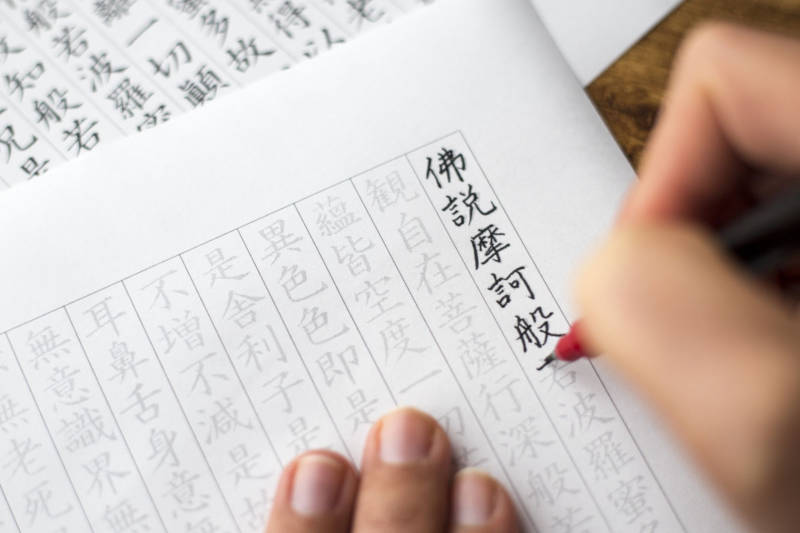 佛説摩訶般若波羅蜜多
観自在菩薩行深般若
蘊皆空度一切
異色色即是
是舎利子是
不増不減是故
耳鼻舌身意
無意識界無
無老死
老
得以
多故
一切顛
般若波羅
知般若
是